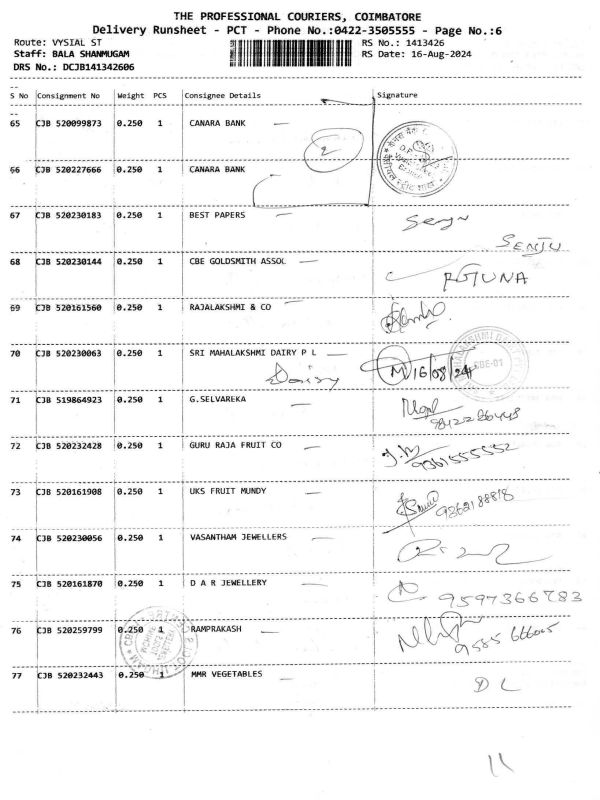 THE PROFESSIONAL COURIERS, COIMBATORE
Delivery Runsheet - PCT - Phone No.:0422-3505555 - Page No.:6
Route: VYSIAL ST RS No.: 1413426
Staff: BALA SHANMUGAM RS Date: 16-Aug-2024
DRS No.: DCJB141342606
S No Consignment No Weight PCS Consignee Details Signature
65 CJB 520099873 0.250 1 CANARA BANK
2
66 CJB 520227666 0.250 1 CANARA BANK
67 CJB 520230183 0.250 1 BEST PAPERS
SENJU
68 CJB 520230144 0.250 1 CBE GOLDSMITH ASSOL
69 CJB 520161560 0.250 1 RAJALAKSHMI & CO
70 CJB 520230063 0.250 1 SRI MAHALAKSHMI DAIRY P L
Dairy M 16/08/24 CBE-01
71 CJB 519864923 0.250 1 G.SELVAREKA
72 CJB 520232428 0.250 1 GURU RAJA FRUIT CO
9361555552
73 CJB 520161908 0.250 1 UKS FRUIT MUNDY
74 CJB 520230056 0.250 1 VASANTHAM JEWELLERS
75 CJB 520161870 0.250 1 D A R JEWELLERY
9597366783
76 CJB 520259799 0.250 1 RAMPRAKASH
77 CJB 520232443 0.250 1 MMR VEGETABLES
D L
11